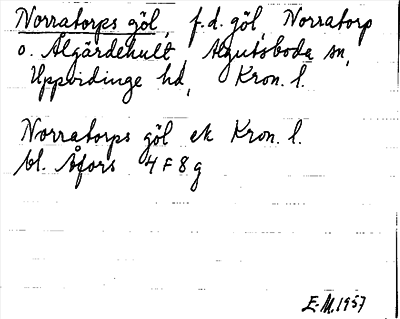 Norratorps göl, f.d. göl, Norratorp
o. Älgärdehult, Algutsboda sn,
Uppvidinge hd, Kron. l.
Norratorps göl ek Kron. l.
bl. Åfors 4 F 8 g
E-M. 1957